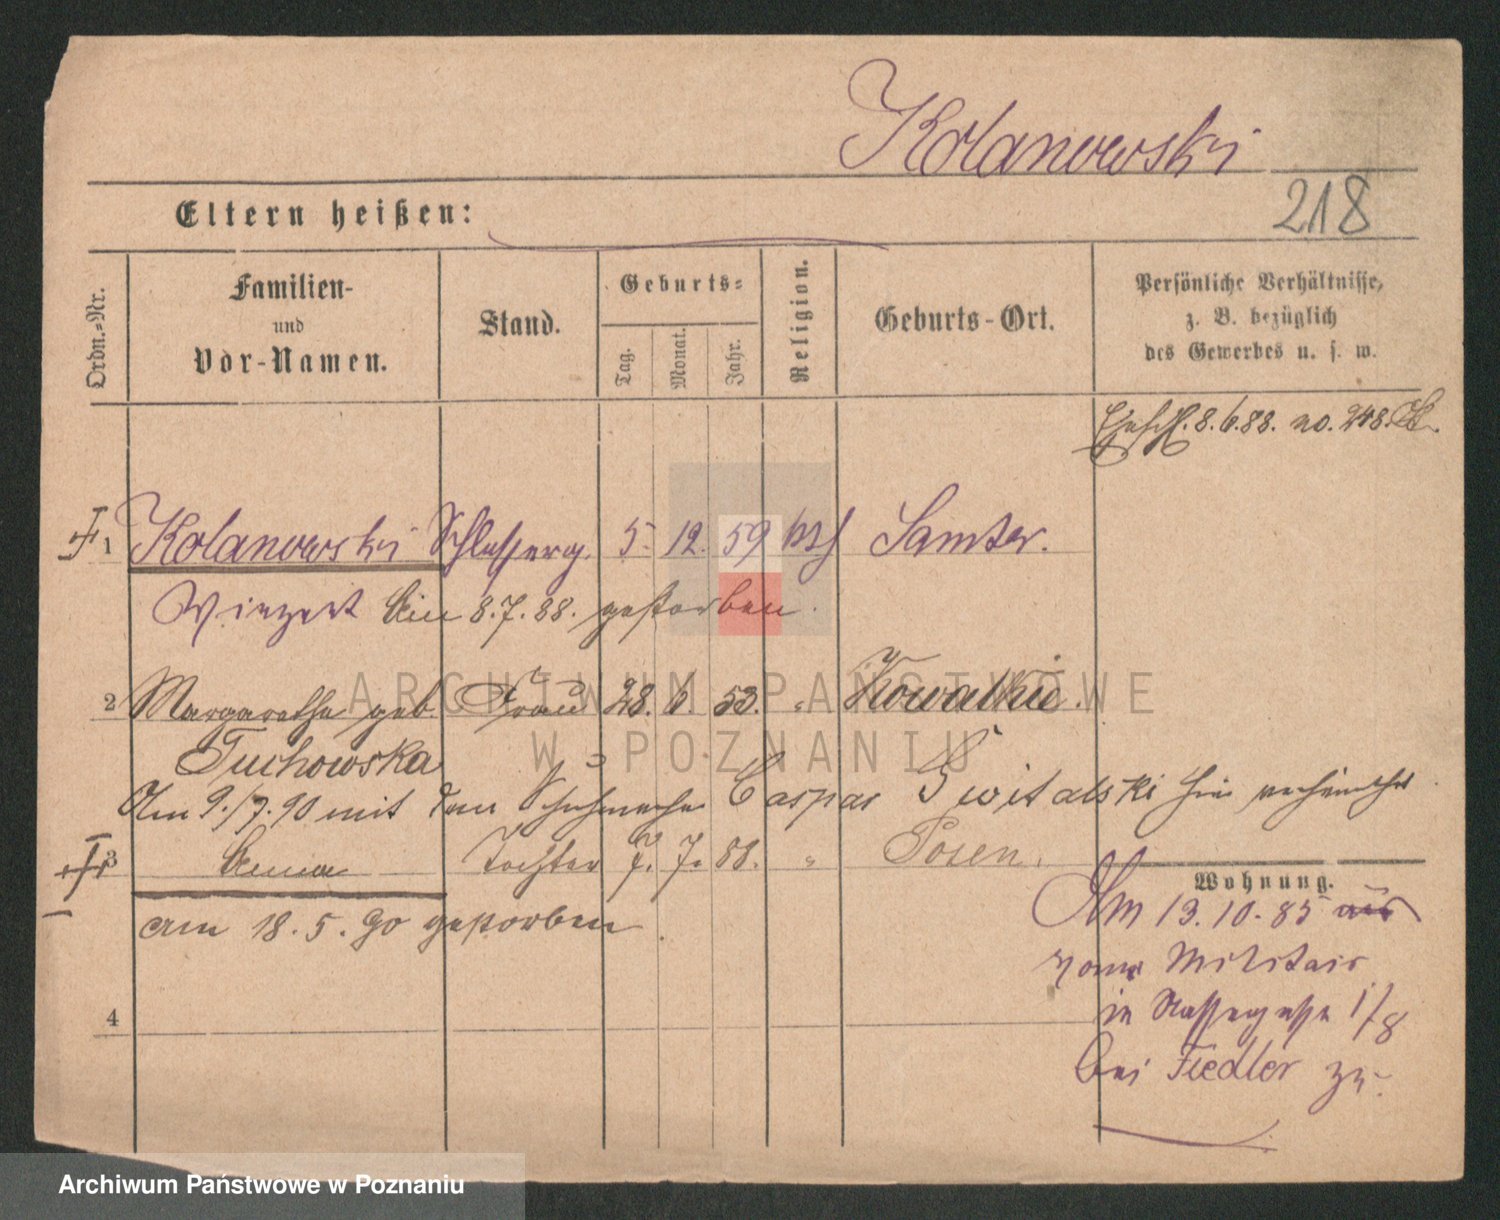 Kolanowski
218
Eltern heißen:
Ordn.=Nr.
Familien-
und
Vor-Namen.
Stand.
Geburts=
Tag.
Monat.
Jahr.
Religion.
Geburts-Ort.
Persönliche Verhältnisse,
z. B. bezüglich
des Gewerbes u. s. w.
8.6.88. no. 248.
1 Kolanowski 5. 12. 59 Samter.
Vinzent 8.7.88. gestorben.
2 Margarethe geb. Frau 28. 6. 53. " Kowalkie.
Tuchowska
Am 9./7.90 mit dem Schuhmacher Caspar Switalski hier verheirathet
3 Anna Tochter 7. 7. 88. " Posen.
Wohnung.
am 18.5.90 gestorben.
Am 13.10.85
vom Militair
in 1/8
bei Fiedler zu.
4
ARCHIWUM PAŃSTWOWE
W POZNANIU
Archiwum Państwowe w Poznaniu